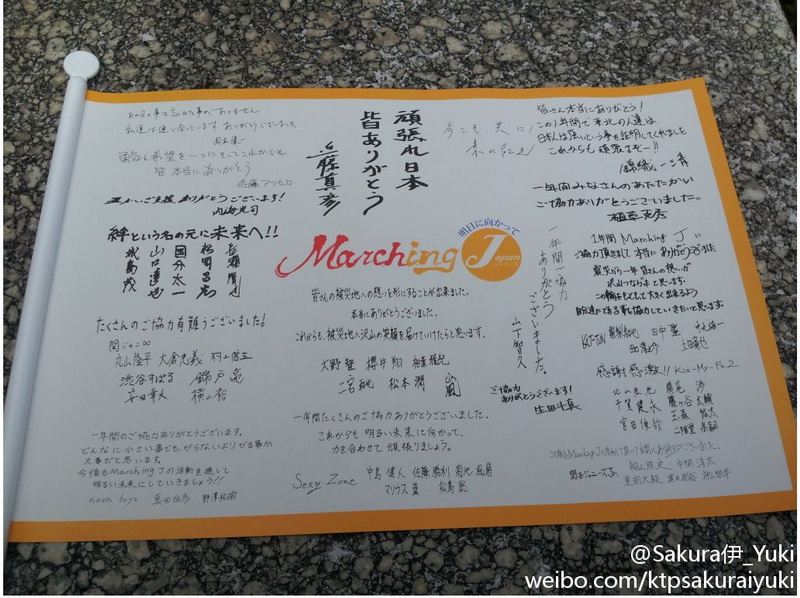 あの日の事は忘れた事がありません
ありがとうございました
岡本健一
勇気と希望を一つにしてこれからも
皆 本当にありがとう
佐藤アツヒロ
ご支援 ありがとうございます!
内海光司
絆という名の元に未来へ!!
城島茂
山口達也
国分太一
松岡昌宏
長瀬智也
たくさんのご協力有難うございました!
関ジャニ∞
丸山隆平 大倉忠義 村上信五
渋谷すばる 錦戸亮
安田章大 横山裕
一年間のご協力ありがとうございます。
どんなに小さい事も、ぜらないよりぜる事が
大事だと思います。
今後もMarching Jの活動を通して
明るい未来にしていきましょう!!
noon boyz 真田佑馬 野澤祐樹
頑張れ日本
皆ありがとう
近藤真彦
今こそ、共に!
明日に向かって
Marching J
Japan
皆さんの被災地への想いを形にすることが出来ました。
本当にありがとうございました。
これからも、被災地へ沢山の笑顔を届けていけたらと思います。
大野智 櫻井翔 相葉雅紀
二宮和也 松本潤 嵐
一年間たくさんのご協力ありがとうございました。
これからも明るい未来に向かって、
力を合わせて頑張りましょう。
Sexy Zone 中島健人 佐藤勝利 菊池風磨
マリウス葉 松島聡
皆さん本当にありがとう!
この1年間で東北の人達は、
日本人は強いという事を証明してくれました
これからも頑張るぞー!!
錦織一清
一年間みなさんのあたたかい
ご協力ありがとうございました。
植草克彦
一年間ご協力
ありがとう
ございました。
山下智久
ご協力
ありがとうございます!
生田斗真
1年間 Marching Jに
ご協力頂きまして本当にありがとうございました
震災から一年皆さんの想いが
沢山つながったと思います。
この輪をもっともっと大きく出来るよう
KAT-TUN 亀梨和也 田中聖 中丸雄一
田口淳之介 上田竜也
感謝感激!! Kis-My-Ft2
北山宏光 横尾渉
千賀健永 藤ヶ谷太輔
宮田俊哉 玉森裕太
二階堂高嗣
関西ジャニーズJr. 桐山照史 中間淳太
重岡大毅
@Sakura伊_Yuki
weibo.com/ktpsakuraiyuki